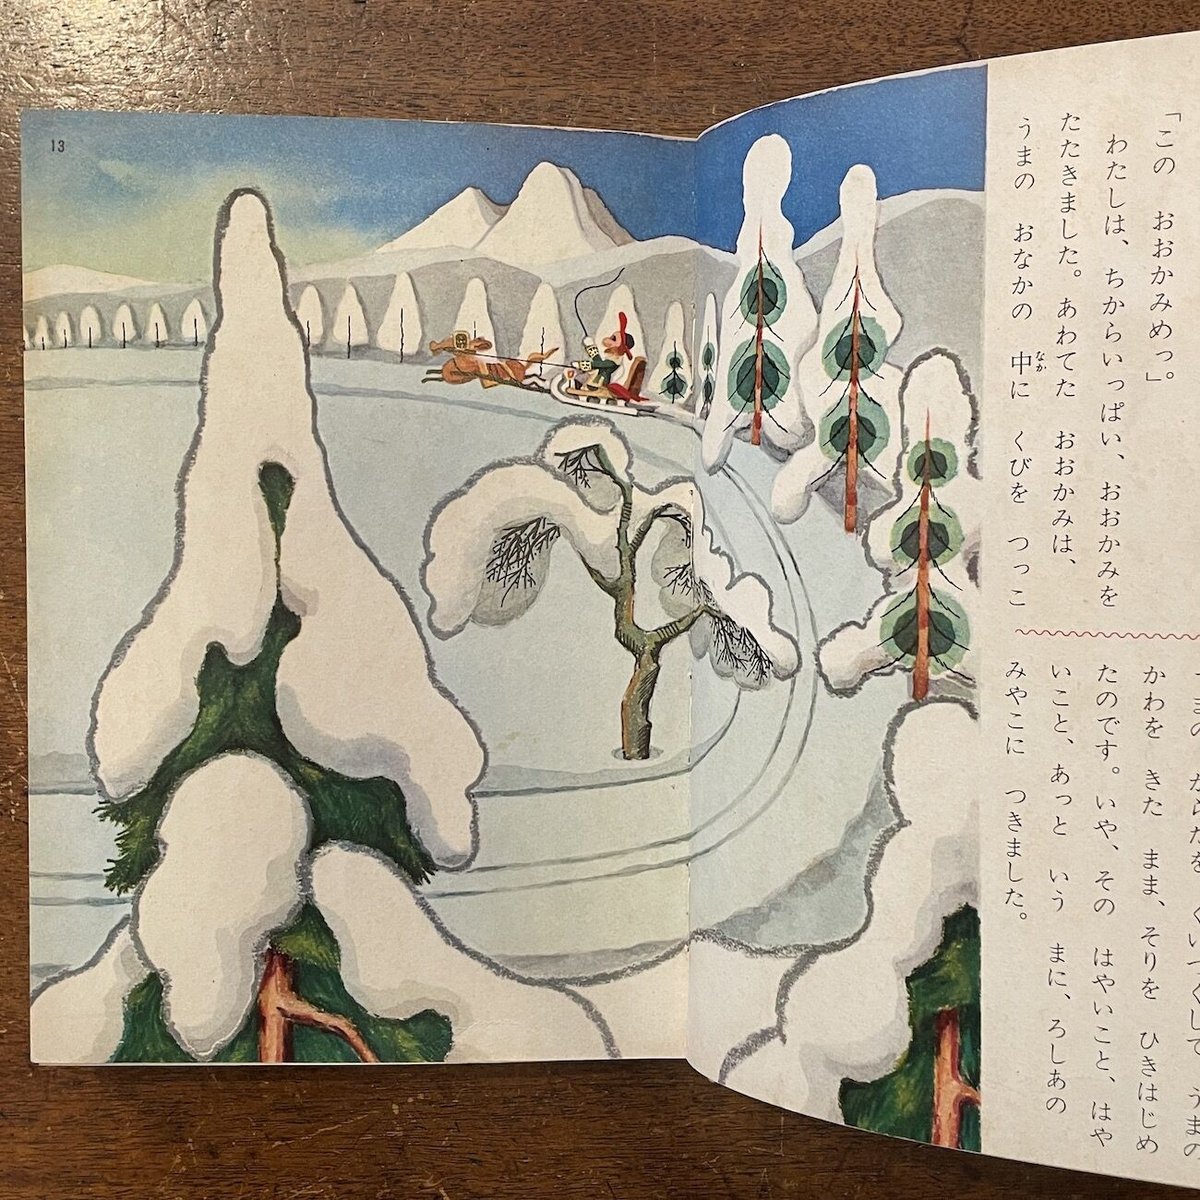 13
「この　おおかみめっ」
わたしは、ちからいっぱい、おおかみを
たたきました。あわてた　おおかみは、
うまの　おなかの　中に　くびを　つっこ
なか
からだを　くいつくして　うまの
かわを　きた　まま、そりを　ひきはじめ
たのです。いや、その　はやいこと、はや
いこと、あっと　いう　まに、ろしあの
みやこに　つきました。